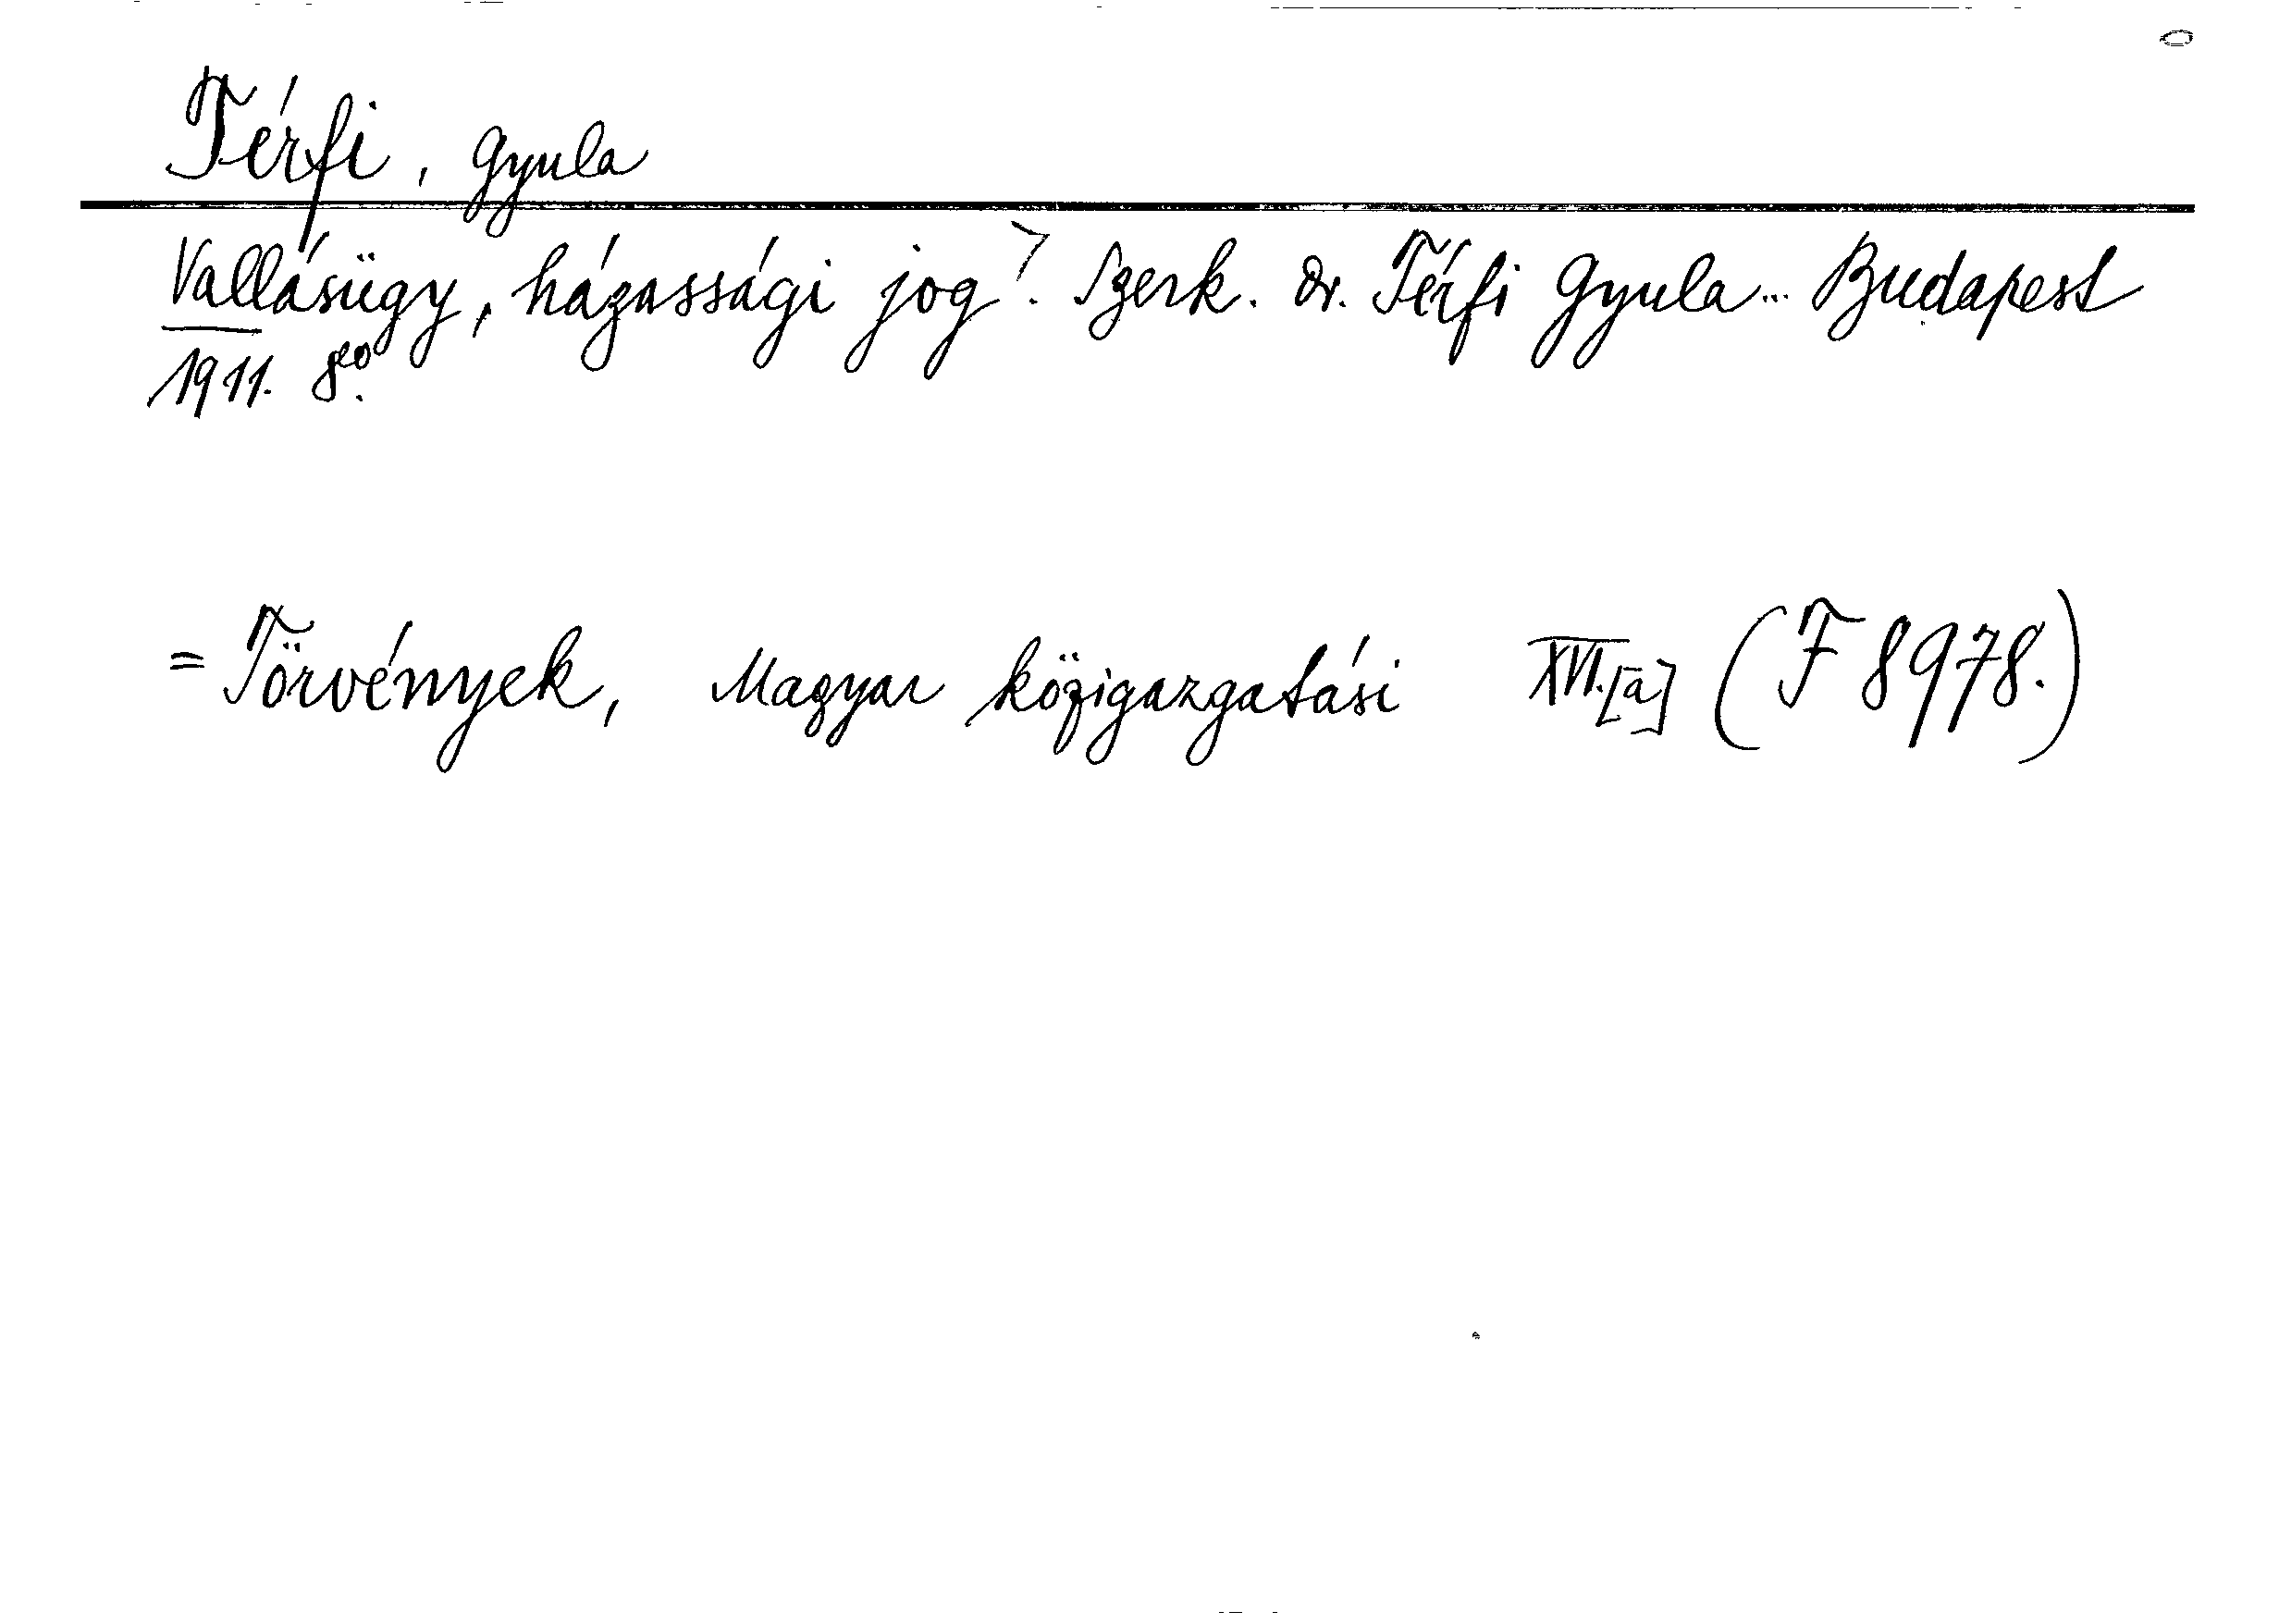 Térfi, Gyula
Vallásügy, házassági jog. Szerk. Dr. Térfi Gyula... Budapest
1911. 8°.
= Törvények, Magyar közigazgatási XVI.[a] (F 8978.)